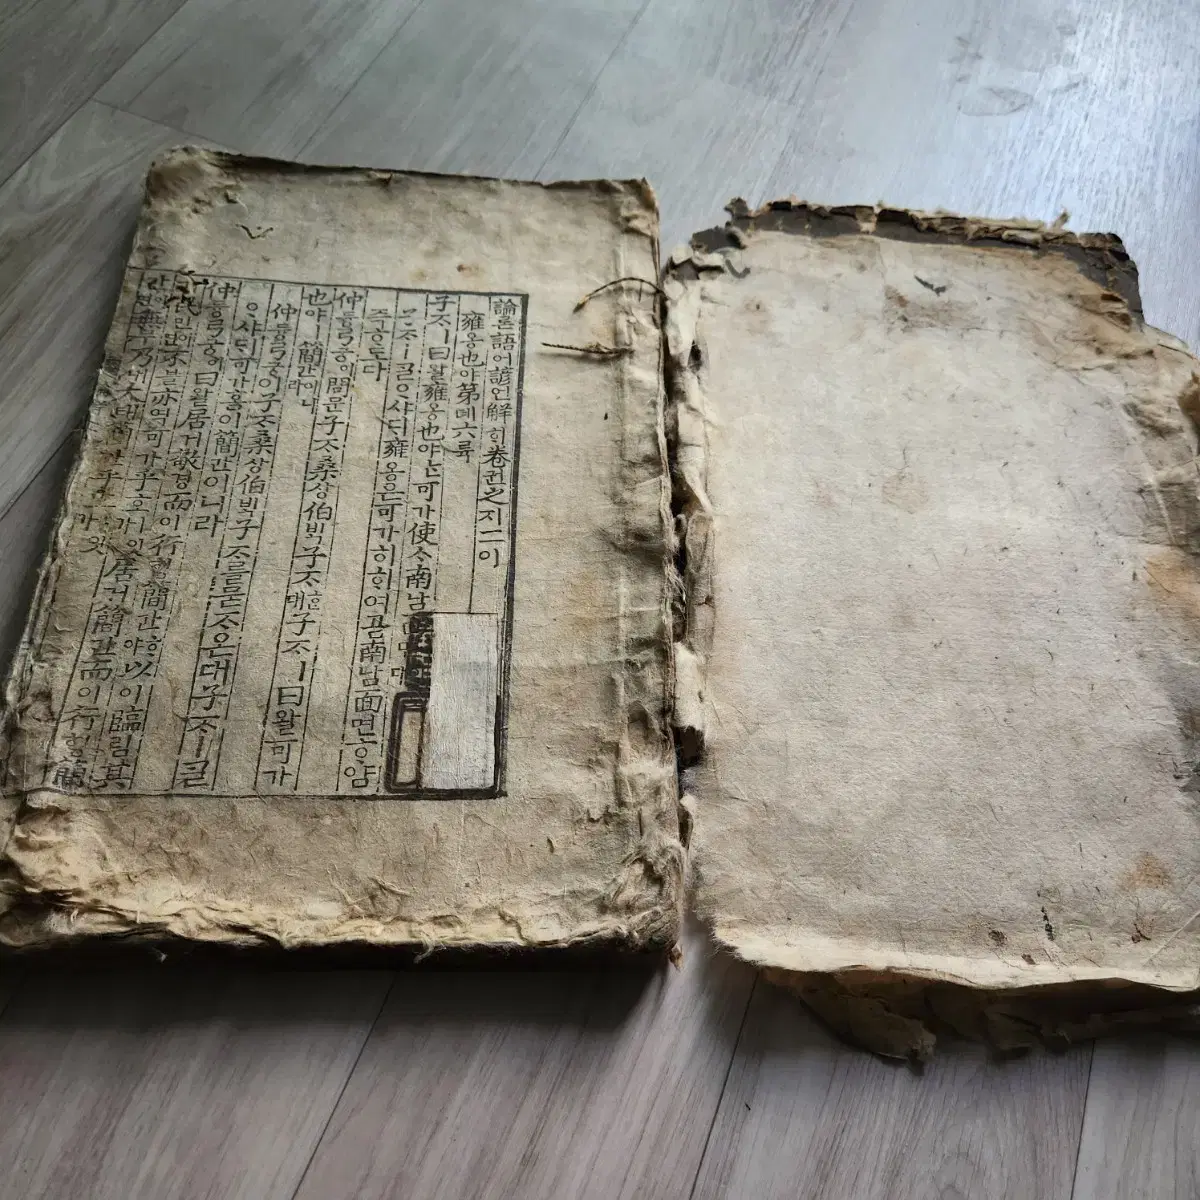 論론語어諺언解ᄒᆡ卷권之지二이
雍옹也야第뎨六륙
子ᄌᆞㅣ曰왈雍옹也야ᄂᆞᆫ可가使ᄉᆞ南남
ᄌᆞㅣᄀᆞᆯᄋᆞ샤ᄃᆡ雍옹은可가히ᄒᆞ여곰南남面면ᄒᆞ얌
즉ᄒᆞ도다
仲듕弓궁이問문子ᄌᆞ桑상伯ᄇᆡᆨ子ᄌᆞᄒᆞᆫ대子ᄌᆞㅣ曰왈可가
也야ㅣ簡간이니라
仲듕弓궁이子ᄌᆞ桑상伯ᄇᆡᆨ子ᄌᆞ를묻ᄌᆞ온대子ᄌᆞㅣᄀᆞᆯ
ᄋᆞ샤ᄃᆡ可가홈이簡간이니라
仲듕弓궁이曰왈居거敬경而이行ᄒᆡᆼ簡간ᄒᆞ야以이臨림其
民민이면不블亦역可가乎호ㅣ잇가居거簡간而이行ᄒᆡᆼ簡
간이면無무乃내大태簡간乎호ㅣ잇가